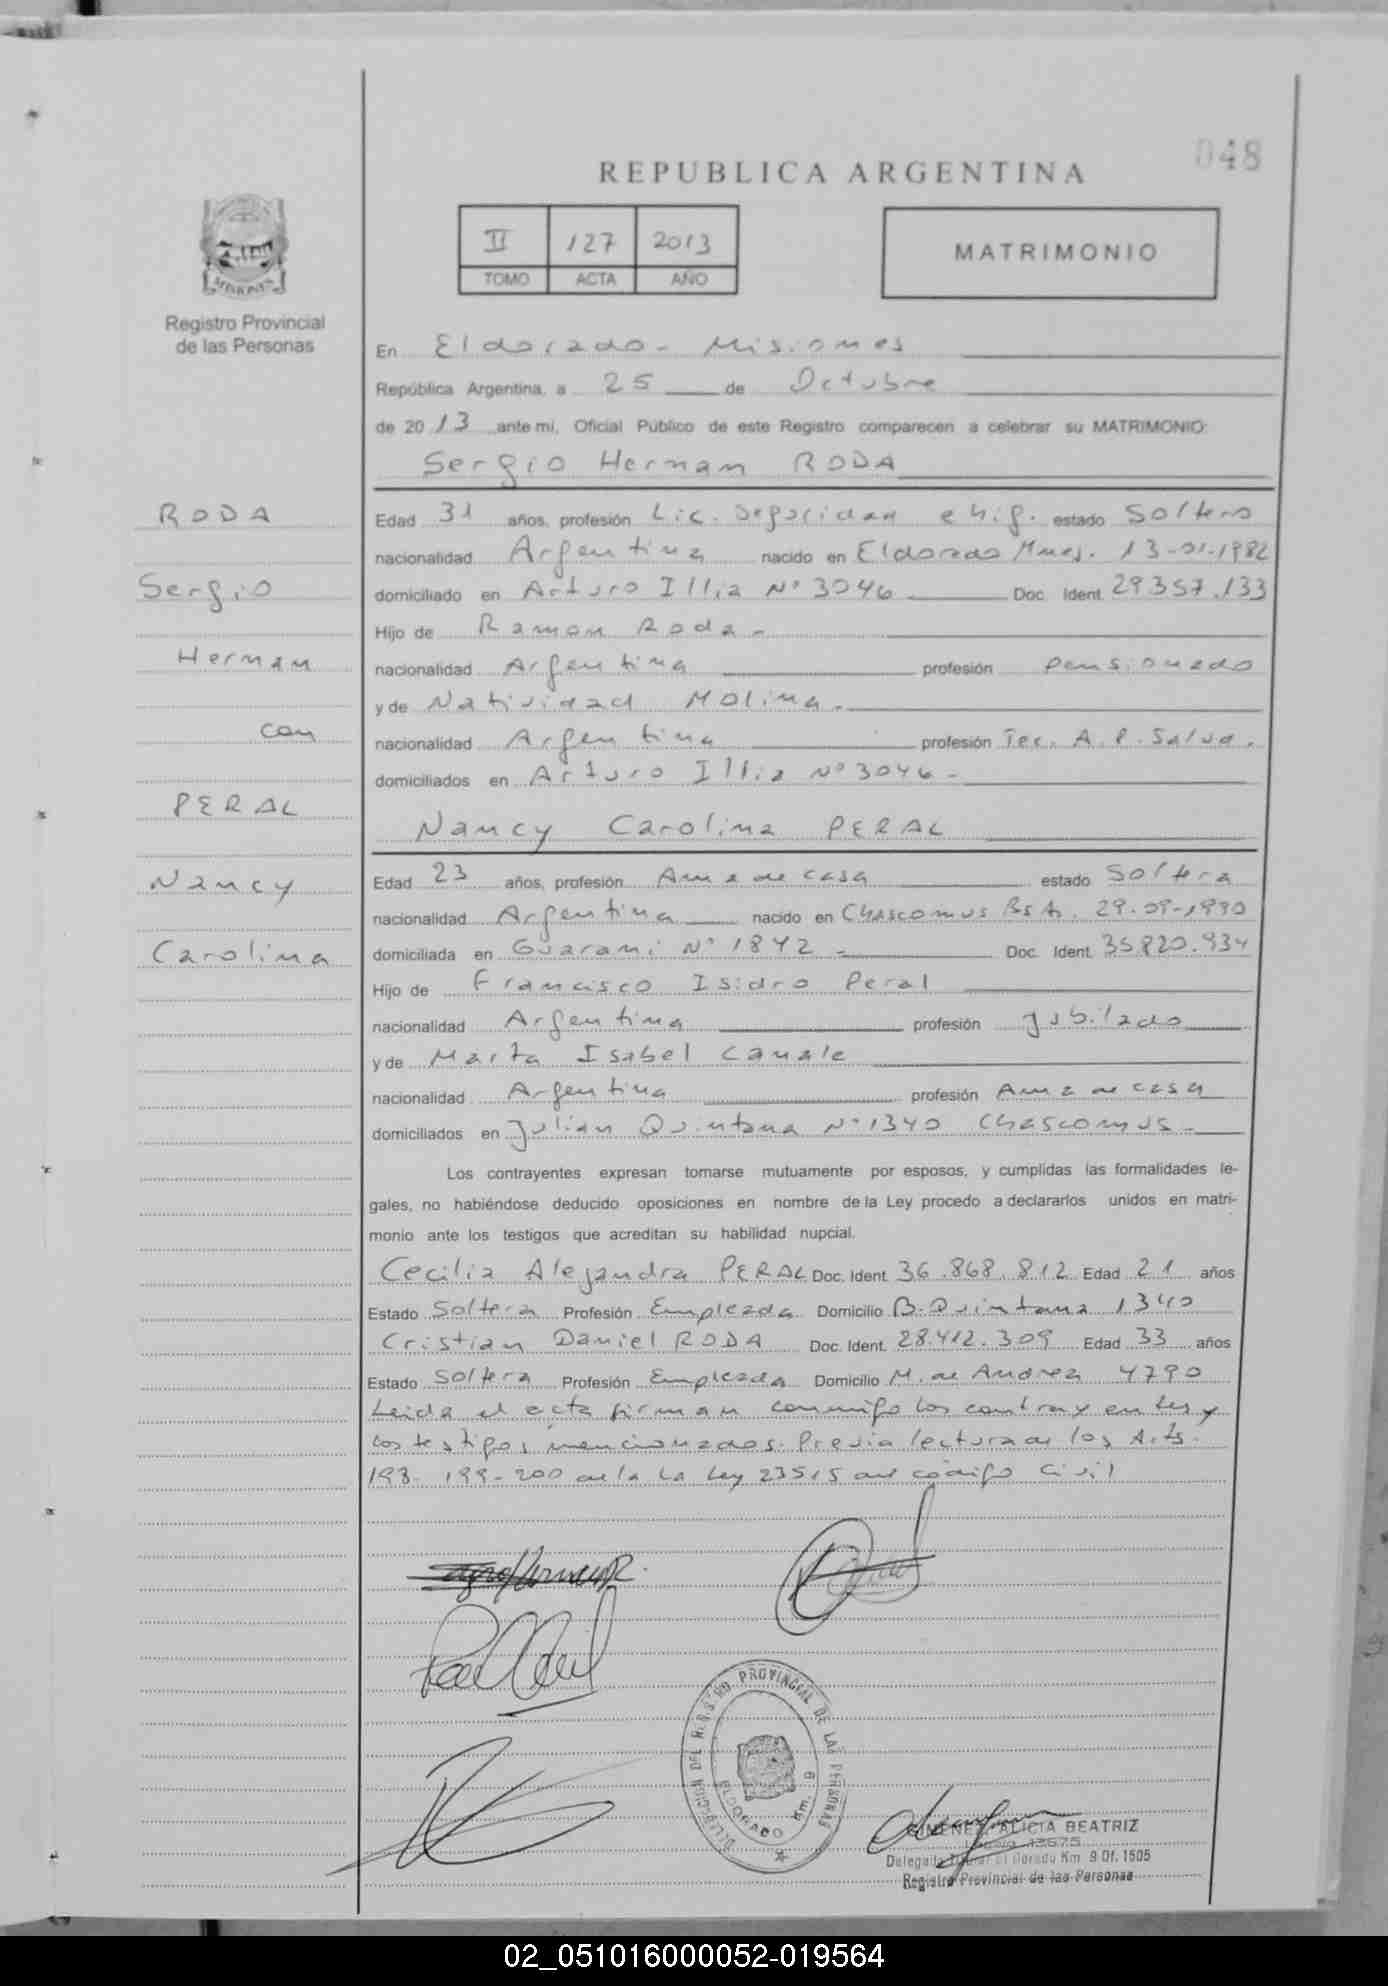 048
REPUBLICA ARGENTINA
II 127 2013
TOMO ACTA AÑO
MATRIMONIO
MISIONES
Registro Provincial
de las Personas
En Eldorado - Misiones
República Argentina, a 25 de Octubre
de 2013 ante mi, Oficial Público de este Registro comparecen a celebrar su MATRIMONIO:
Sergio Hernan RODA
RODA
Sergio
Hernan
con
PERAL
Nancy
Carolina
Edad 31 años, profesión Lic. Seguridad e hig. estado Soltero
nacionalidad Argentina nacido en Eldorado Mnes. 13-01-1982
domiciliado en Arturo Illia N° 3046 Doc. Ident. 29.357.133
Hijo de Ramon Roda -
nacionalidad Argentina profesión pensionado
y de Natividad Molina -
nacionalidad Argentina profesión Tec. A. P. Salud.
domiciliados en Arturo Illia N° 3046 -
Nancy Carolina PERAL
Edad 23 años, profesión Ama de casa estado Soltera
nacionalidad Argentina nacido en Chascomus Bs As. 29-09-1990
domiciliada en Guarani N° 1842 - Doc. Ident. 35.820.934
Hijo de Francisco Isidro Peral
nacionalidad Argentina profesión jubilado
y de Marta Isabel Canale
nacionalidad Argentina profesión Ama de casa
domiciliados en Julian Quintana N° 1340 Chascomus -
Los contrayentes expresan tomarse mutuamente por esposos, y cumplidas las formalidades le-
gales, no habiéndose deducido oposiciones en nombre de la Ley procedo a declararlos unidos en matri-
monio ante los testigos que acreditan su habilidad nupcial.
Cecilia Alejandra PERAL Doc. Ident. 36.868.812 Edad 21 años
Estado Soltera Profesión Empleada Domicilio B. Quintana 1340
Cristian Daniel RODA Doc. Ident. 28.412.309 Edad 33 años
Estado Soltera Profesión Empleada Domicilio M. de Andrea 4790
Leida el acta firman conmigo los contrayentes y
los testigos mencionados. Previa lectura de los Arts.
198- 199-200 de la La Ley 23515 del código Civil
DELEGACION DEL REGISTRO PROVINCIAL DE LAS PERSONAS
ELDORADO Km. 9
GIMENEZ, ALICIA BEATRIZ
Delegada Km. 9 Of. 1505
Registro Provincial de las Personas
02_051016000052-019564